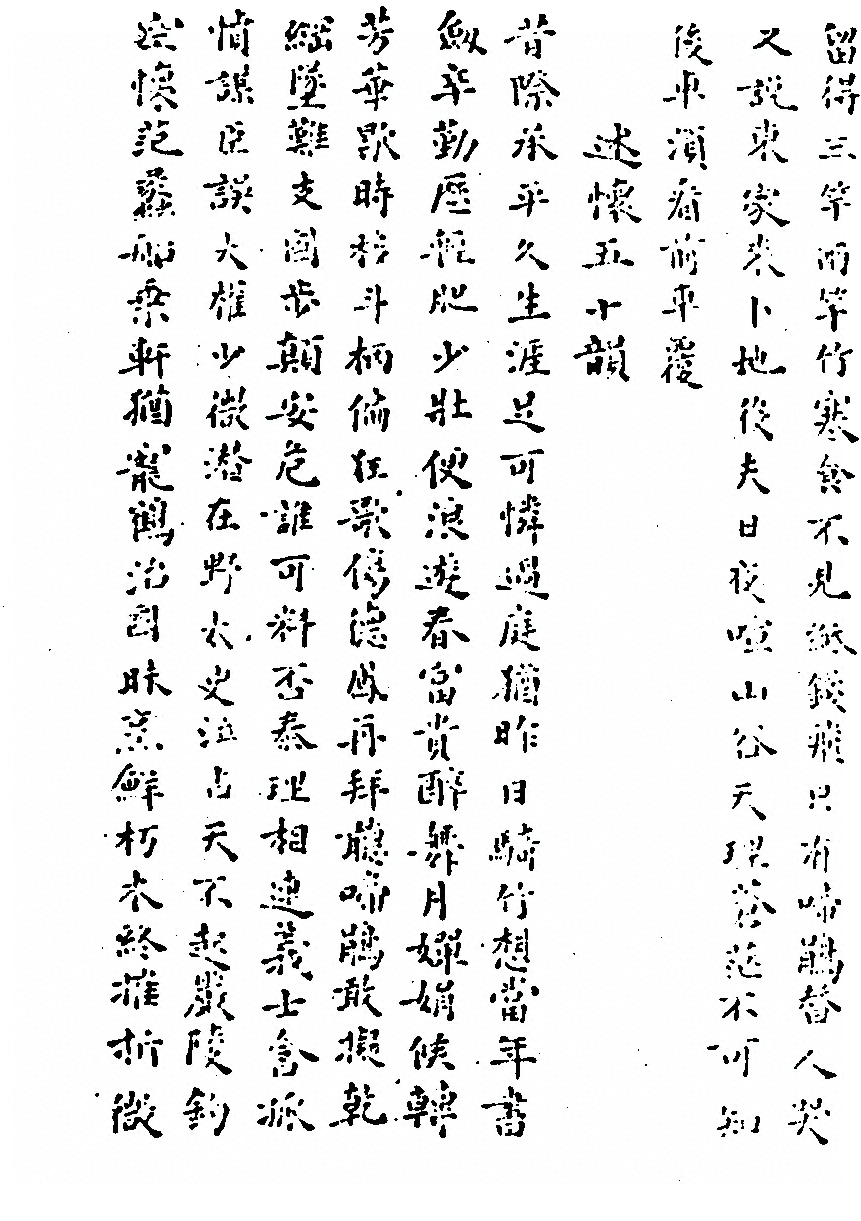 留得三竿兩竿竹寒食不見紙錢飛只有啼鵑替人哭
又說東家來卜地後夫日夜喧山谷天理蒼茫不可知
後車須看前車覆
述懷五十韻
昔際承平久生涯足可憐過庭猶昨日騎竹想當年書
劍辛勤歷輕肥少壯便浪遊春富貴醉舞月嬋娟候轉
芳華歇時移斗柄偏狂歌傷德鳳再拜聽啼鵑敢擬乾
綱墜難支國步顛安危誰可料否泰理相連義士禽孤
憤謀臣誤大權少微潛在野太史泣占天不起嚴陵釣
空懷范蠡船乘軒猶寵鶴治國昧烹鮮朽木終摧折微